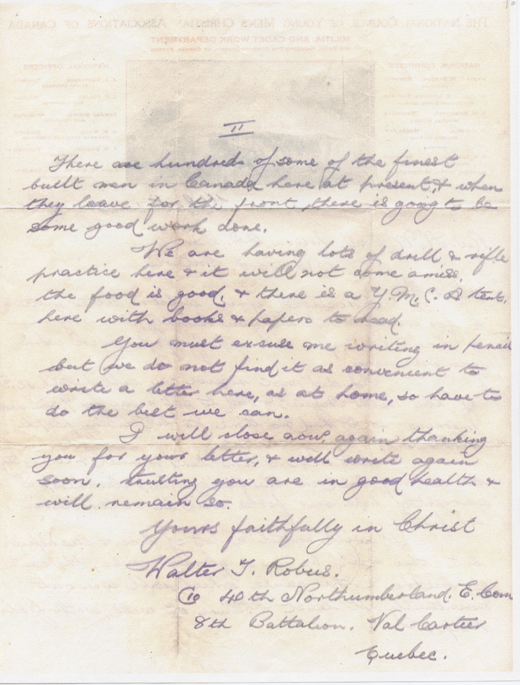 II
There are hundreds of some of the finest
built men in Canada here at present, & when
they leave for the front, there is going to be
some good work done.
We are having lots of drill & rifle
practice here & it will not come amiss.
the food is good, & there is a Y.M.C.A tent,
here with books & papers to read.
You must excuse me writing in pencil
but we do not find it as convenient to
write a letter here, as at home, so have to
do the best we can.
I will close now, again thanking
you for your letter, & will write again
soon. trusting you are in good health &
will remain so.
Yours faithfully in Christ
Walter T. Robus.
Co 40th Northumberland. E. Com
8th Battalion. Val Cartier
Quebec.